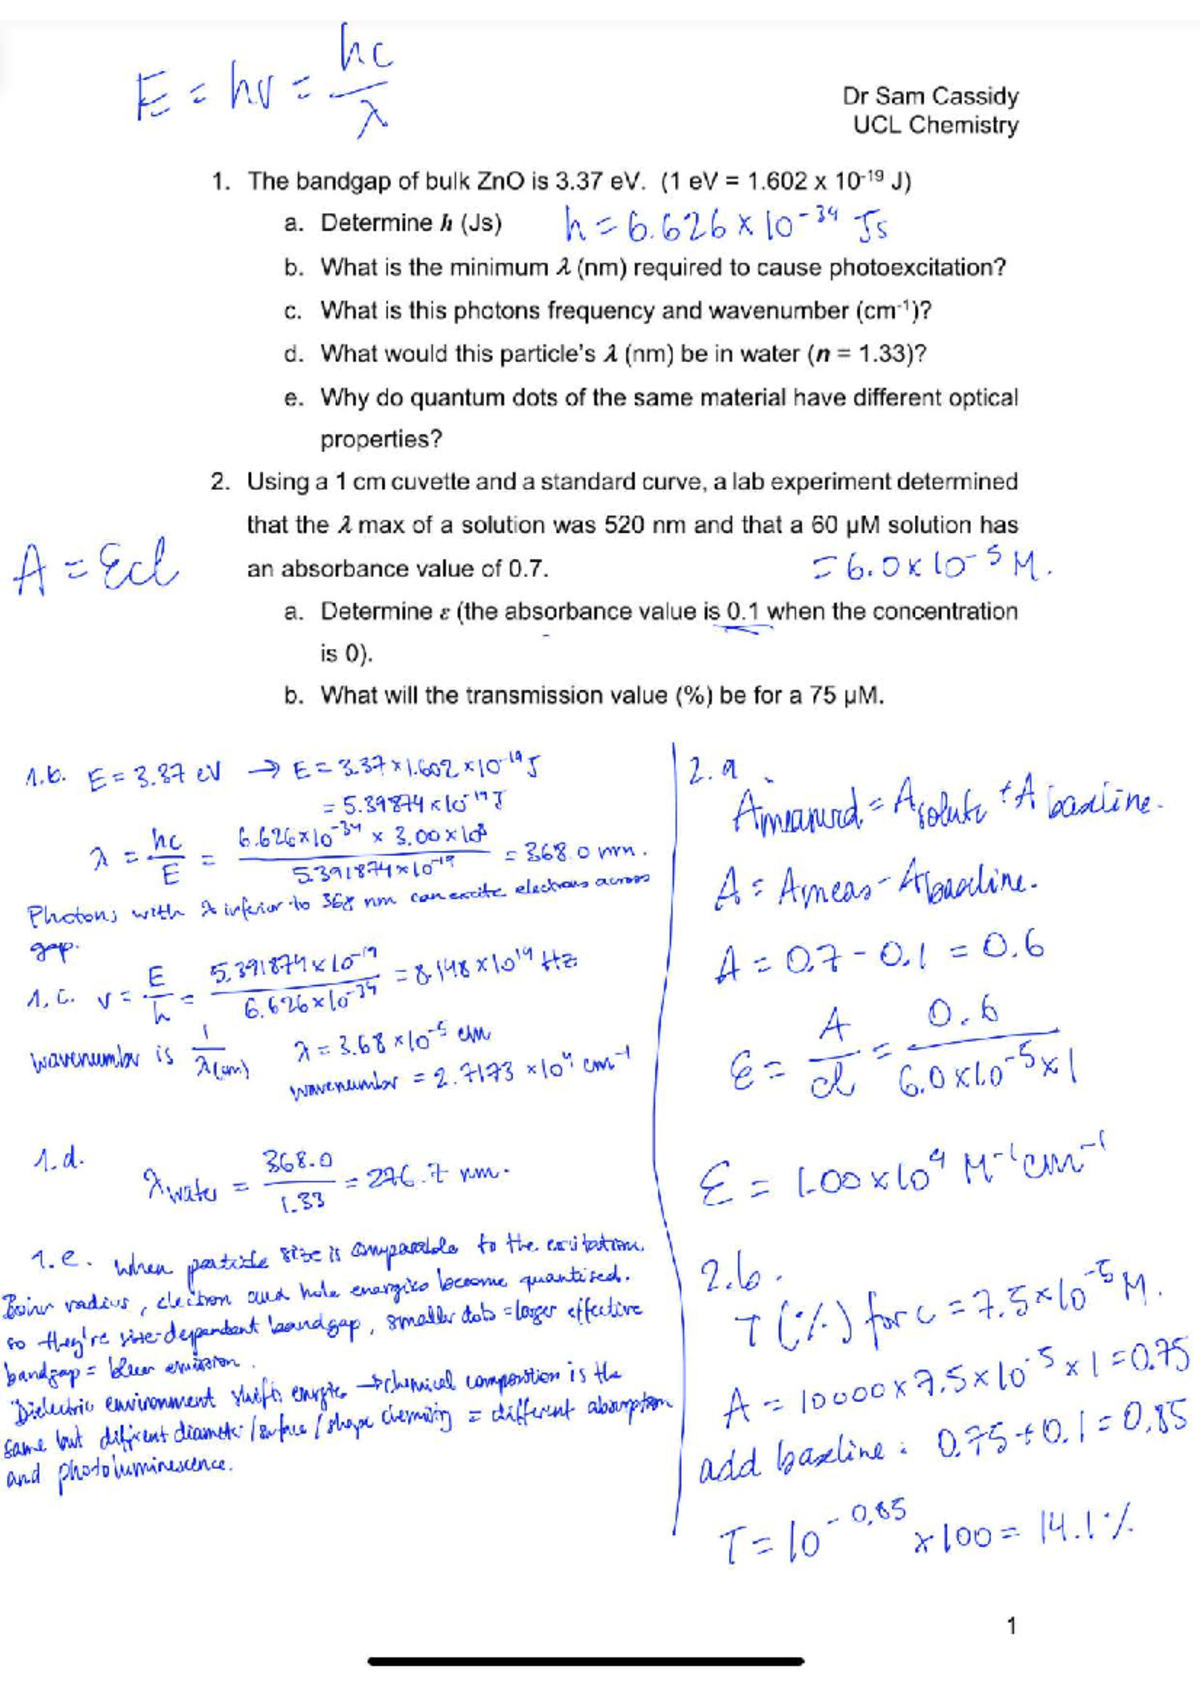 E = hν = hc/λ
Dr Sam Cassidy
UCL Chemistry
1. The bandgap of bulk ZnO is 3.37 eV. (1 eV = 1.602 x 10⁻¹⁹ J)
a. Determine h (Js) h = 6.626 × 10⁻³⁴ Js
b. What is the minimum λ (nm) required to cause photoexcitation?
c. What is this photons frequency and wavenumber (cm⁻¹)?
d. What would this particle's λ (nm) be in water (n = 1.33)?
e. Why do quantum dots of the same material have different optical
properties?
2. Using a 1 cm cuvette and a standard curve, a lab experiment determined
that the λ max of a solution was 520 nm and that a 60 µM solution has
an absorbance value of 0.7. = 6.0 × 10⁻⁵ M.
A = Ɛcl
a. Determine ε (the absorbance value is 0.1 when the concentration
is 0).
b. What will the transmission value (%) be for a 75 µM.
1.b. E = 3.37 eV → E = 3.37 × 1.602 × 10⁻¹⁹ J
= 5.39874 × 10⁻¹⁹ J
λ = hc/E = 6.626×10⁻³⁴ × 3.00×10⁸ / 5.391874×10⁻¹⁹ = 368.0 nm.
Photons with λ inferior to 368 nm can excite electrons across
gap.
1.c. ν = E/h = 5.391874×10⁻¹⁹ / 6.626×10⁻³⁴ = 8.148×10¹⁴ Hz
wavenumber is 1/λ(cm) λ = 3.68×10⁻⁵ cm
wavenumber = 2.7173 ×10⁴ cm⁻¹
1.d. λwater = 368.0/1.33 = 276.7 nm.
1.e. When particle size is comparable to the excitation.
Bohr radius, electron and hole energies become quantised.
so they're size-dependent bandgap, smaller dots = larger effective
bandgap = bluer emission.
Dielectric environment shifts → chemical composition is the
same but different diameter / surface / shape chemistry = different absorption
and photoluminescence.
2.a.
Ameasured = Asolute + A baseline.
A = Ameas - Abaseline.
A = 0.7 - 0.1 = 0.6
Ɛ = A/cl = 0.6 / 6.0×10⁻⁵×1
Ɛ = 1.00×10⁴ M⁻¹cm⁻¹
2.b.
T (%) for c = 7.5×10⁻⁵ M.
A = 10000 × 7.5×10⁻⁵ × 1 = 0.75
add baseline: 0.75 + 0.1 = 0.85
T = 10⁻⁰·⁸⁵ × 100 = 14.1 %
1